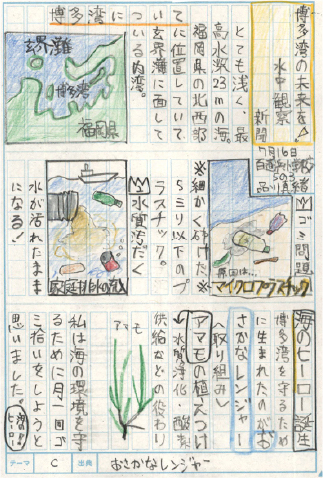 博多湾の未来を
水中観察
新聞
博多湾につ
いて
とても浅く、最
高水深23mの海。
福岡県の北西部
に位置していて
玄界灘に面して
いる内湾。
玄界灘
博多湾
福岡県
7月16日
ゴミ問題
原因は…
マイクロプラスチック
※細かく砕けた※
5ミリ以下のプ
ラスチック。
水質汚だく
家庭排水の流
水が汚れたまま
になる!
海のヒーロー誕生
博多湾を守るため
に生まれたのがお
さかなレンジャー
〈取り組み〉
アマモの植えつけ
↓水質浄化 酸素
供給などの役わり
アマモ
私は海の環境を守
るために月一回ゴ
ミ拾いをしようと
思いました。
海の
ヒーロー
テーマ C 出典 おさかなレンジャー